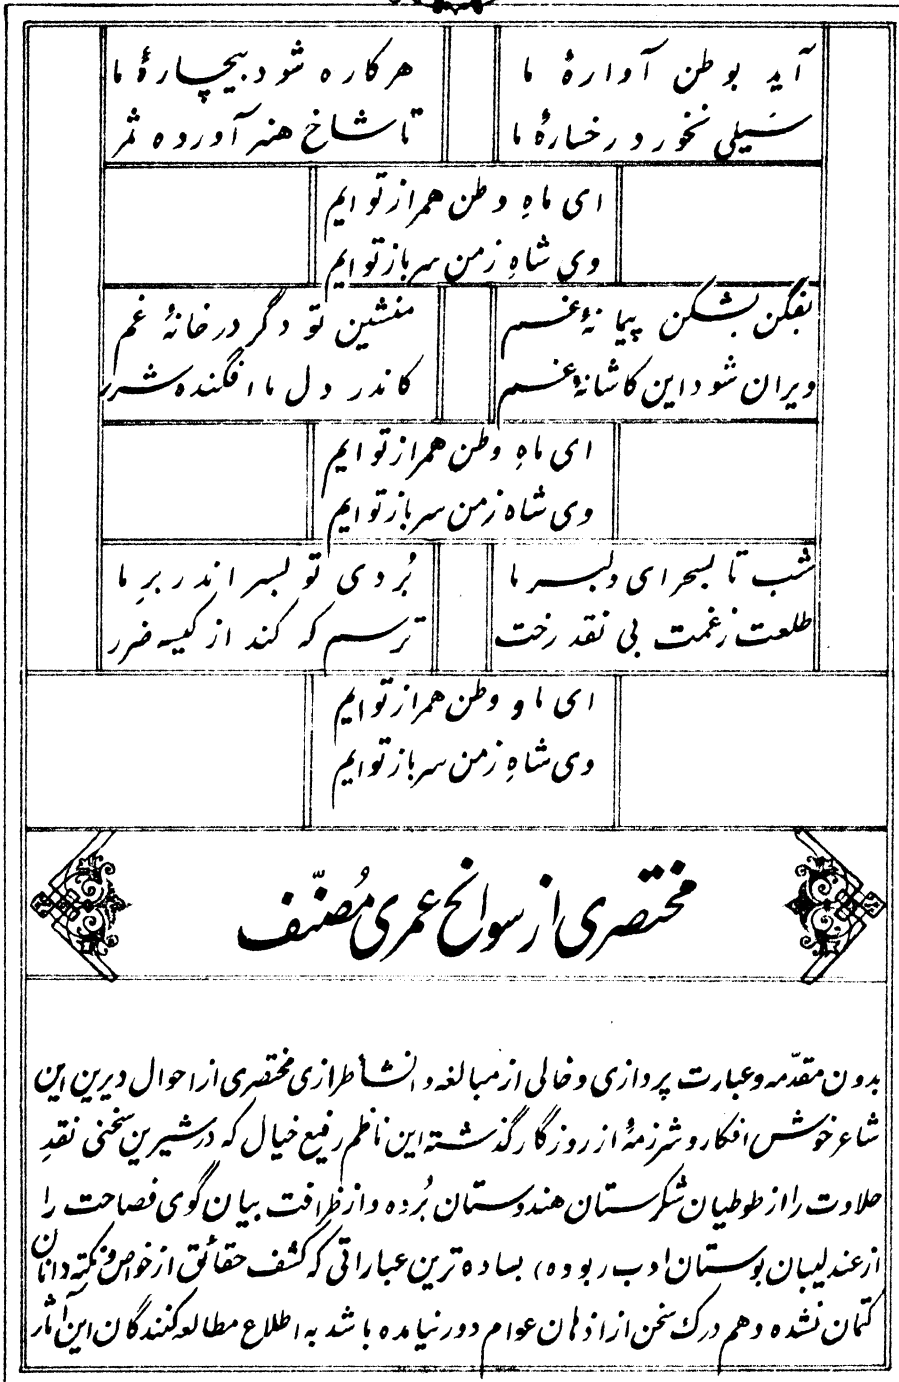 آید بوطن آوارهٔ ما هر کاره شود بیچارهٔ ما
سَیلی نخورد رخسارهٔ ما تا شاخ هنر آورده ثمر
ای ماهِ وطن همراز توایم
وی شاهِ زمن سرباز توایم
بفگن بشکن پیمانهٔ غم منشین تو دگر در خانهٔ غم
ویران شود این کاشانهٔ غم کاندر دل ما افگنده شرر
ای ماهِ وطن همراز توایم
وی شاه زمن سرباز توایم
شب تا بسحر ای دلبر ما بُردی تو بسر اندر برِ ما
طلعت زغمت بی نقد رخت ترسم که کند از کیسه ضرر
ای ماه وطن همراز توایم
وی شاهِ زمن سرباز توایم
مختصری از سوانح عمری مُصنّف
بدون مقدّمه و عبارت پردازی و خالی از مبالغه و انشا طرازی مختصری از احوال دیرین این
شاعر خوش افکار و شرزمهٔ از روزگار گذشته این ناظم رفیع خیال که در شیرین سخنی نقدِ
حلاوت را از طوطیان شکرستان هندوستان بُرده و از ظرافت بیان گوی فصاحت را
از عندلیبان بوستان ادب ربوده، بساده ترین عباراتی که کشف حقائق از خواص و نکته دانان
کتمان نشده و هم درک سخن از اذهان عوام دور نیامده باشد به اطلاع مطالعه کنندگان این آثار